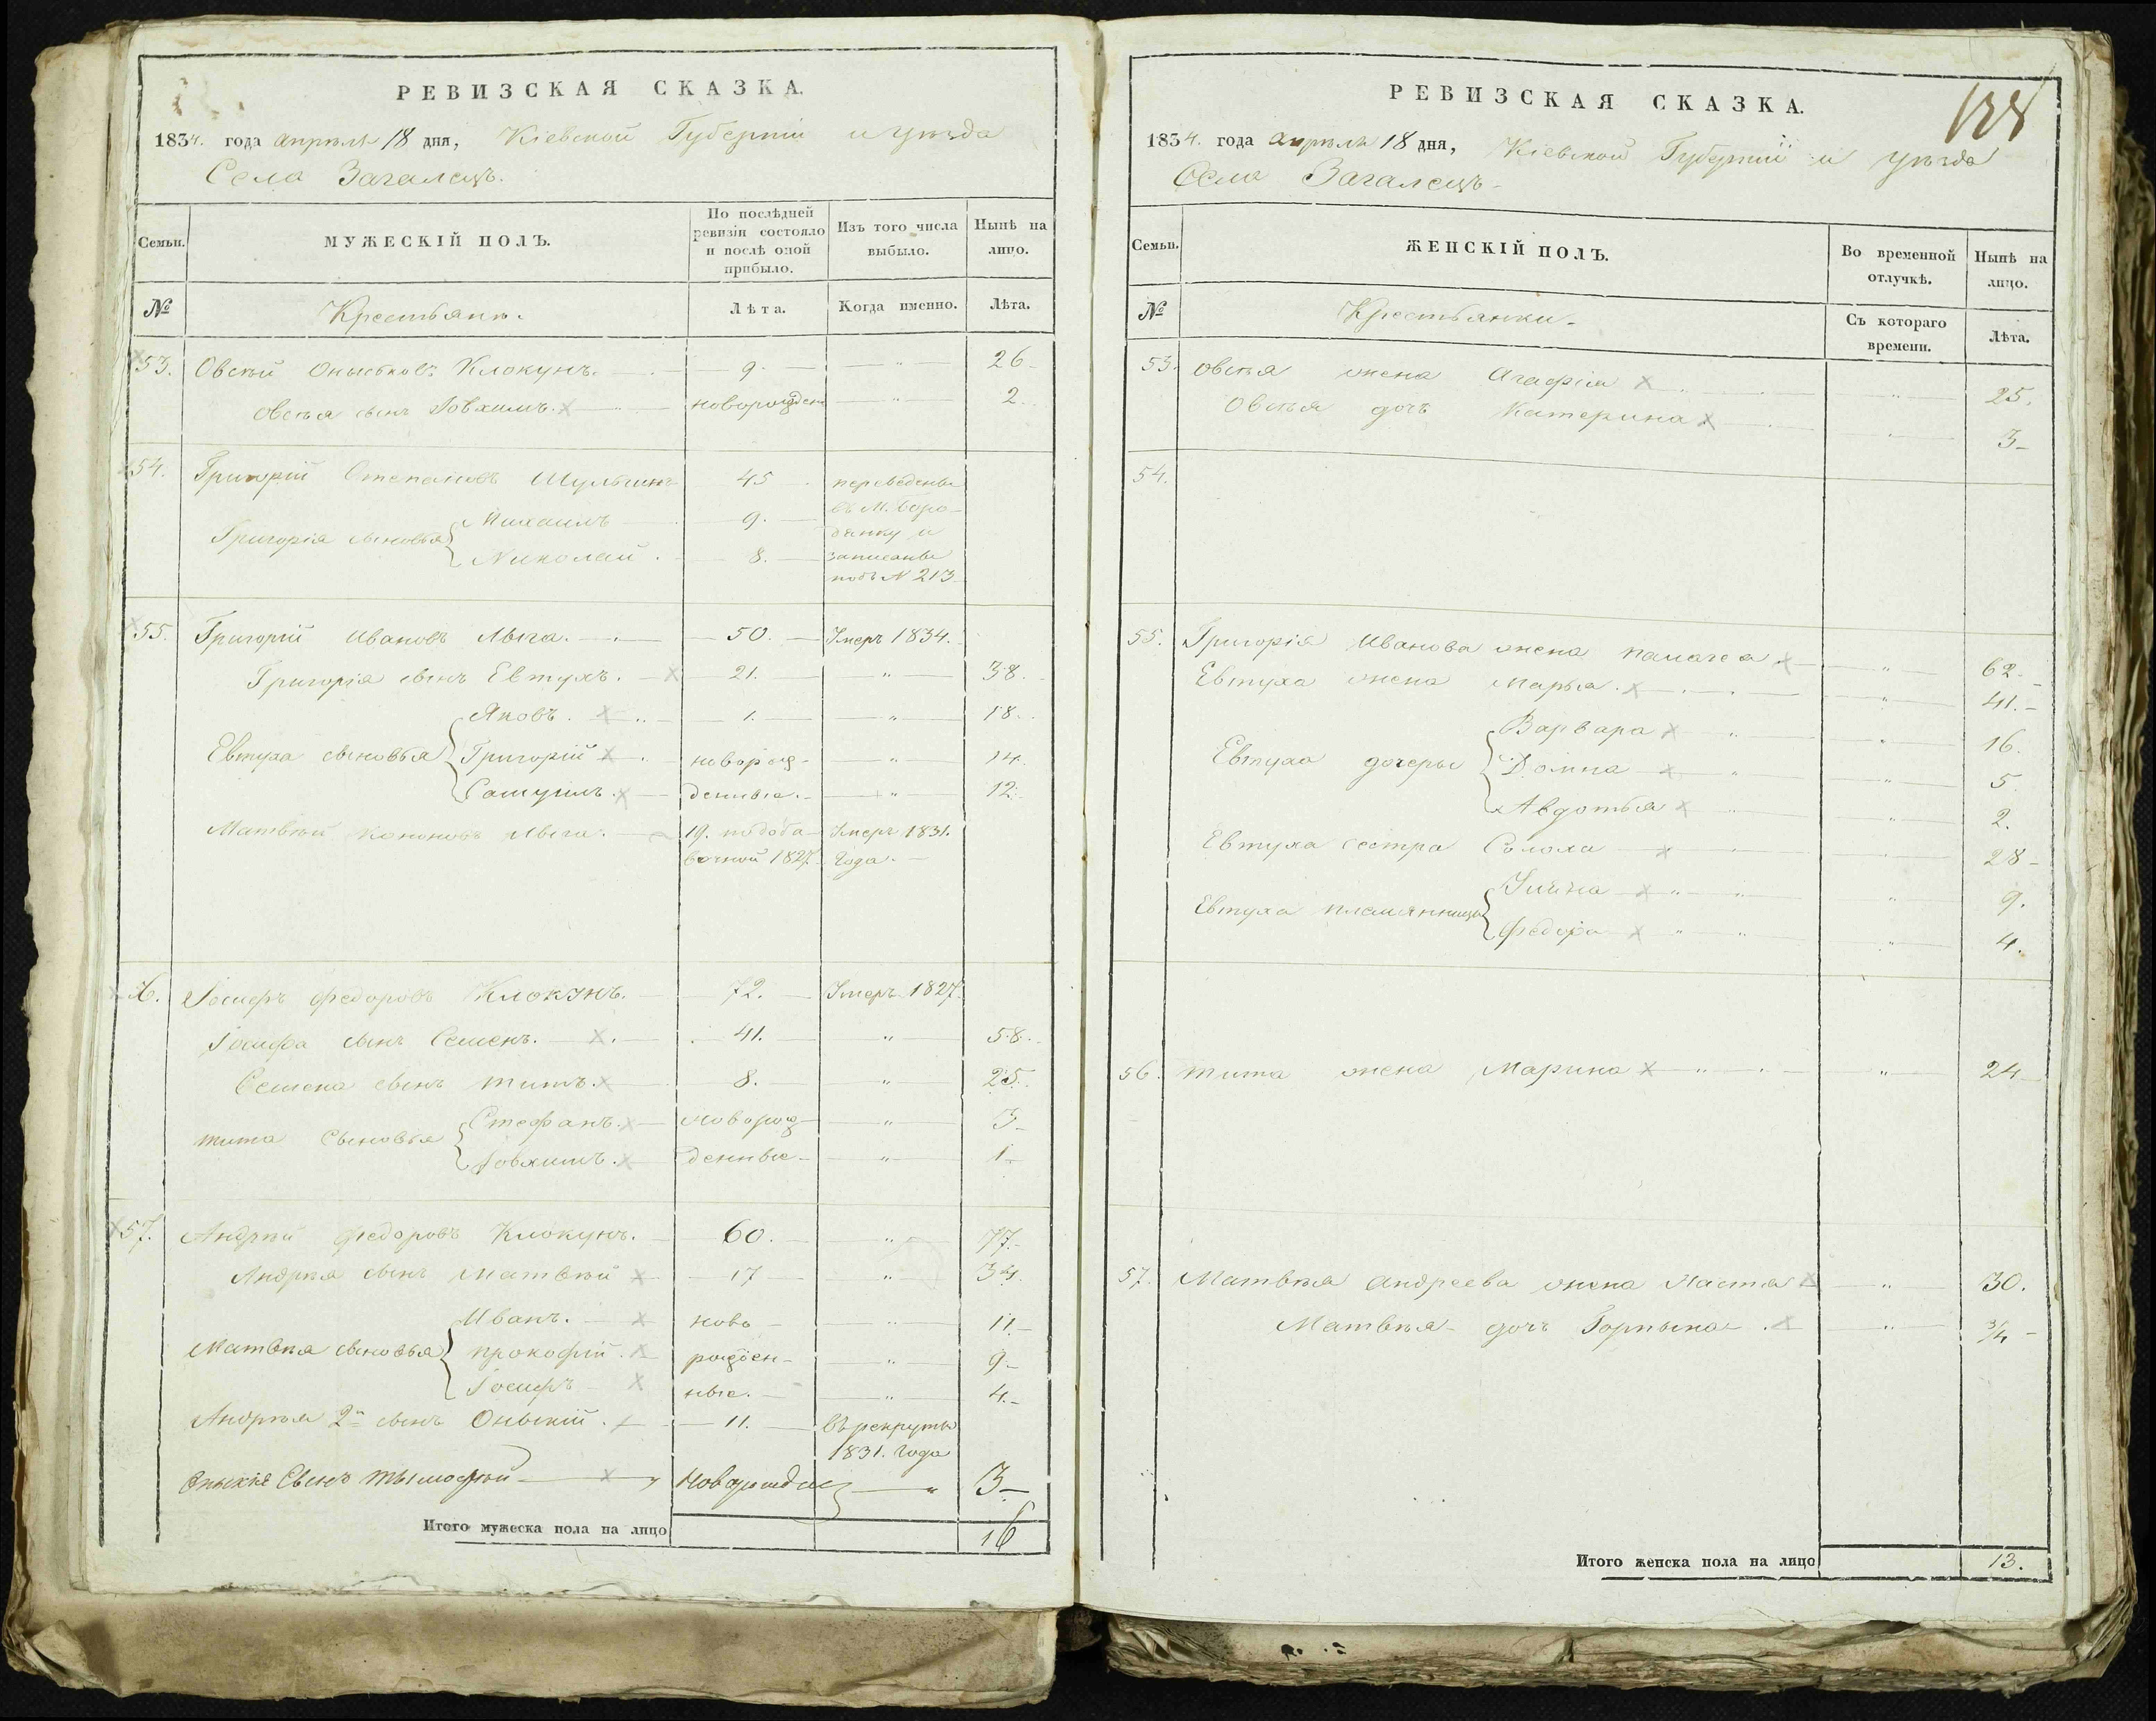 РЕВИЗСКАЯ СКАЗКА.
1834. года апрѣля 18 дня, Кіевской Губерніи и уѣзда
Села Загалецъ.
Семьи. МУЖЕСКІЙ ПОЛЪ. По послѣдней ревизіи состояло и послѣ оной прибыло. Изъ того числа выбыло. Нынѣ на лицо.
№ Крестьяне. Лѣта. Когда именно. Лѣта.
53. Овсѣй Оныськовъ Клокунъ. 9. " 26
Овсѣя сынъ Іовхимъ. новорожден " 2.
54. Григорій Степановъ 45 переведены
Григорія сыновья Михаилъ 9. въ М. Боро-
дянку и
Николай. 8. записаны
подъ N 213
55. Григорій Ивановъ Лыга. 50. Умеръ 1834.
Григорія сынъ Евтухъ. 21. " 38.
Яковъ. 1. " 18.
Евтуха сыновья Григорій новорож- " 14.
Самуилъ. денные. " 12.
Матвѣй Кононовъ Лыга. 19. по доба- Умеръ 1831.
вочной 1827. Года.
56. Іосифъ Федоровъ Клокунъ. 72. Умеръ 1827.
Іосифа сынъ Семенъ. 41. " 58.
Семена сынъ Титъ. 8. " 25.
Тита Сыновья Стефанъ. новорож- " 3
Іовхимъ. денные " 1.
57. Андрѣй Федоровъ Клокунъ. 60. " 77.
Андрѣя сынъ Матвѣй 17 " 34.
Иванъ. ново " 11.
Матвѣя сыновья Прокофій. рожден- " 9
Іосифъ ные. " 4.
Андрѣя 2й сынъ Оныскій. 11. въ рекруты
1831. Года
Сынъ Тымофѣй " 3
Итого мужеска пола на лицо 16
РЕВИЗСКАЯ СКАЗКА.
1834. года апрѣля 18 дня, Кіевской Губерніи и уѣзда
Села Загалецъ
Семьи. ЖЕНСКІЙ ПОЛЪ. Во временной отлучкѣ. Нынѣ на лицо.
№ Крестьянки. Съ котораго времени. Лѣта.
53. Овсѣя жена Агафія " 25.
Овсѣя дочь Катерина " 3
54.
55. Григорія Иванова жена Палагея " 62.
Евтуха жена Марья. " 41.
Варвара " 16.
Евтуха дочеры Домна " 5
Авдотья " 2.
Евтуха сестра Солоха " 28
Улияна " 9.
Евтуха племянницы Федора " 4.
56. Тита жена Марина " 24
57. Матвѣя Андреева жена Настя " 30.
Матвѣя дочь Горпына " 3/4
Итого женска пола на лицо 13.